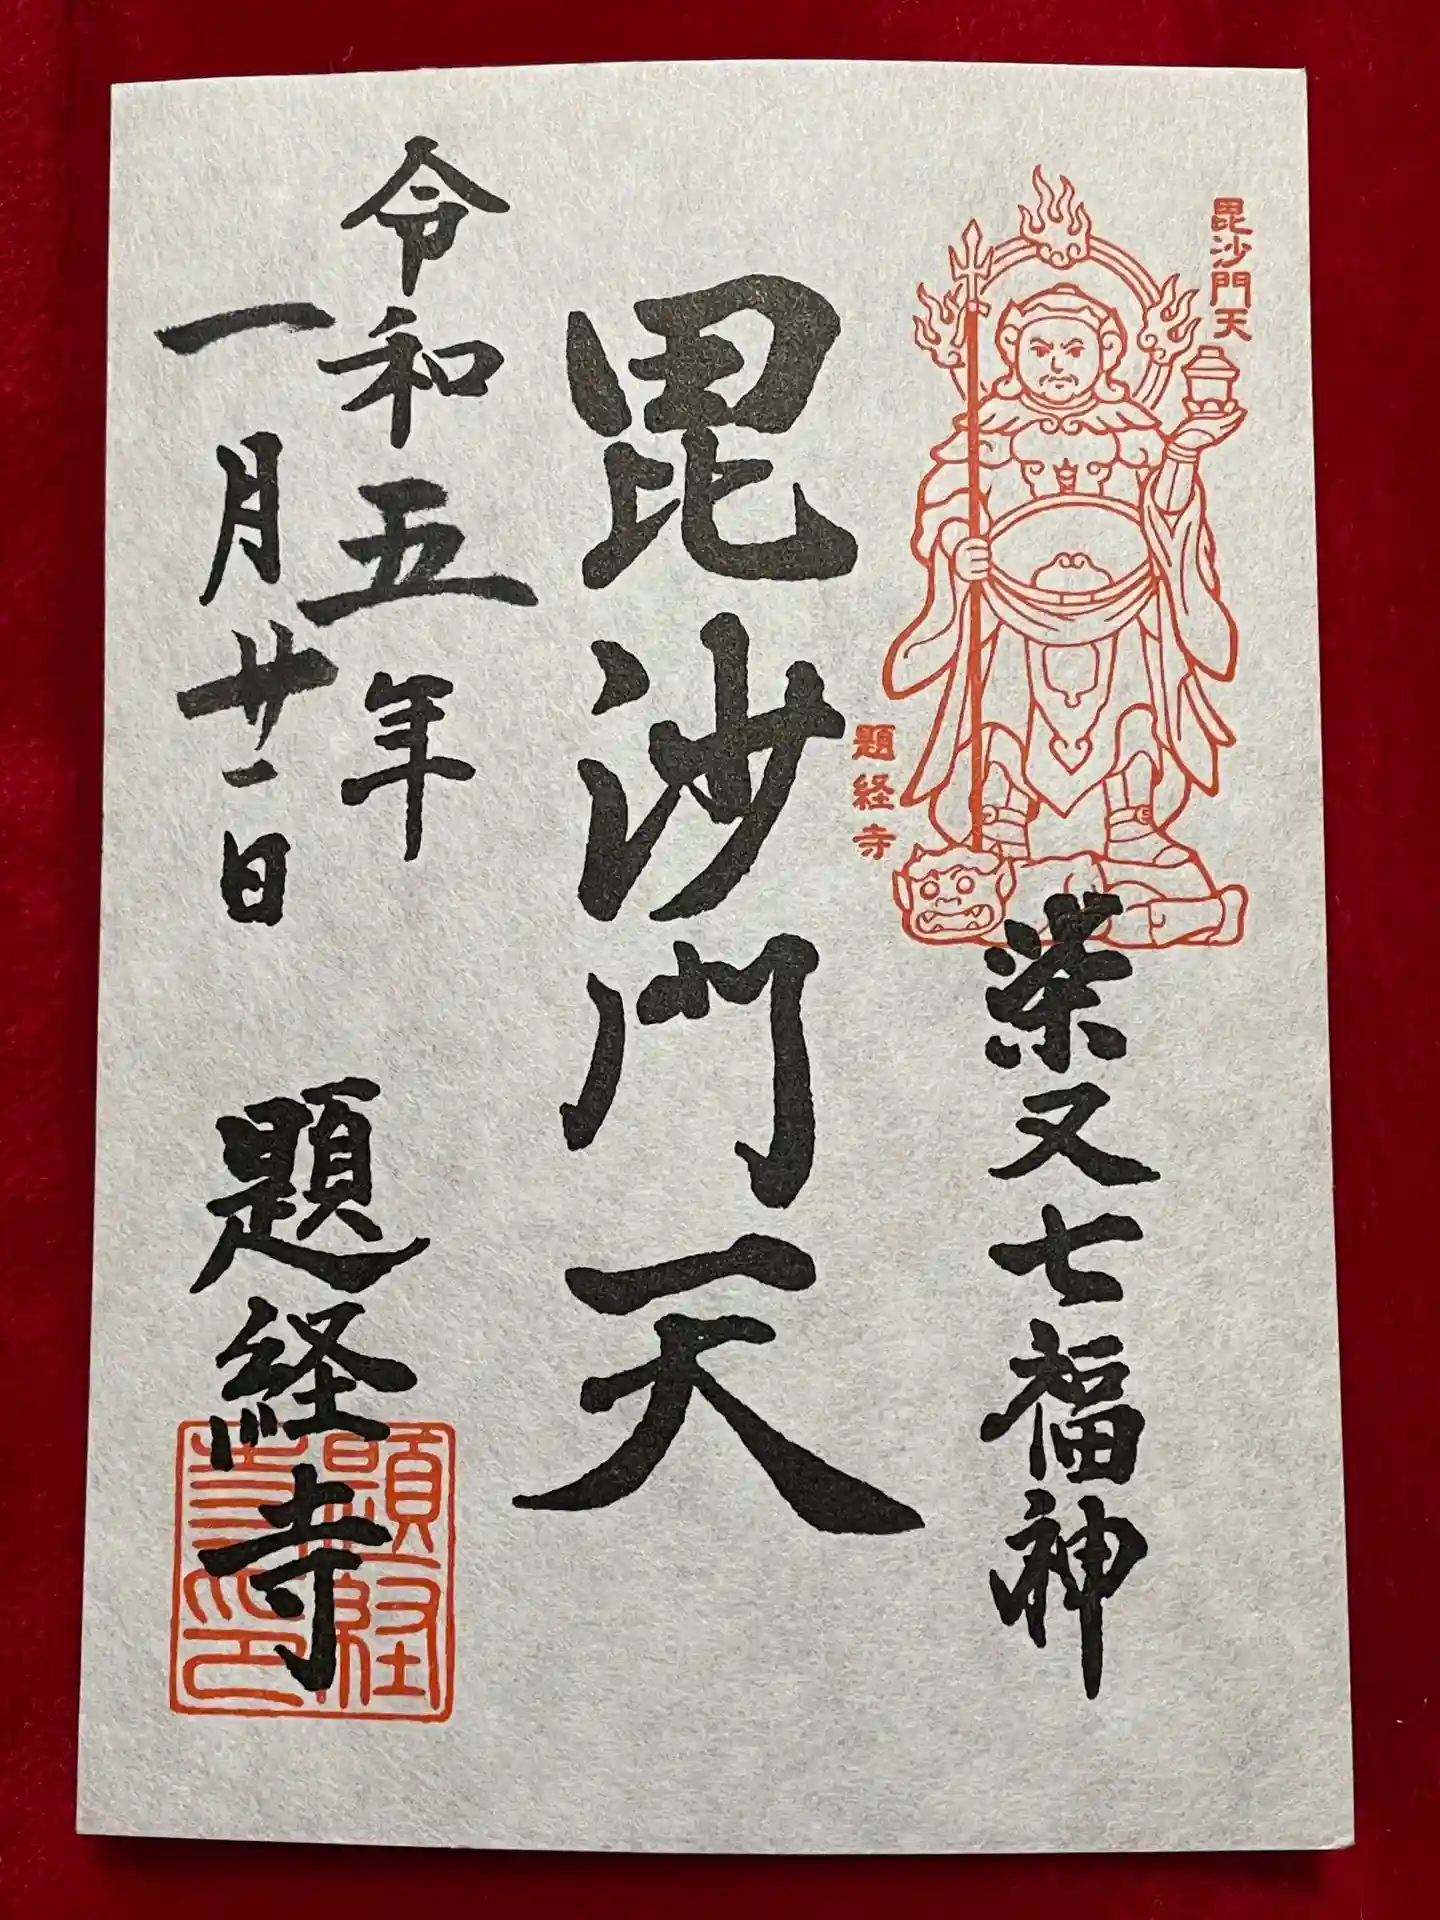 毘沙門天
題経寺
柴又七福神
毘沙門天
令和五年
一月廿一日
題経寺
題経寺印